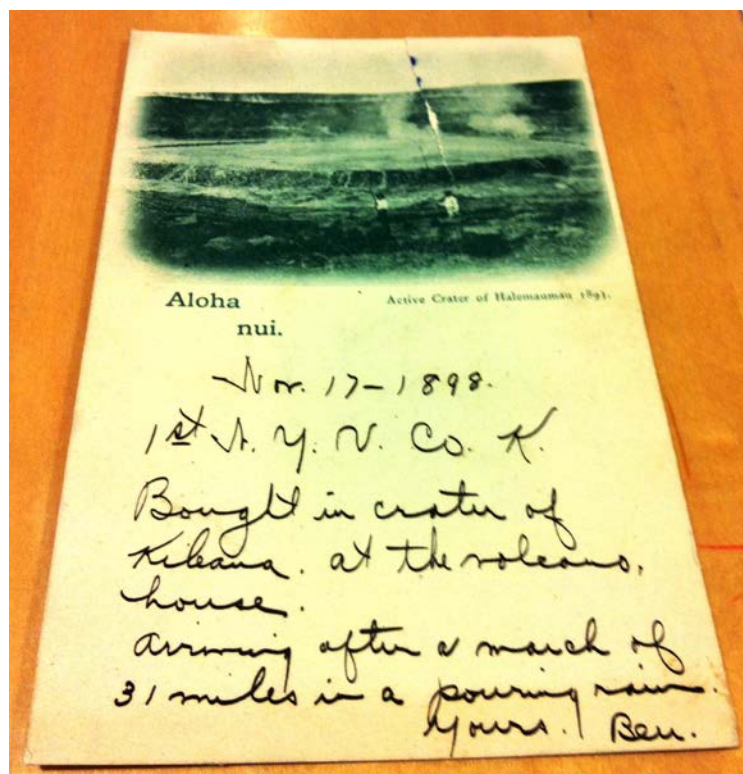 Aloha
nui.
Active Crater of Halemaumau 1893.
Nov. 17-1898.
1st N. Y. V. Co. K.
Bought in crater of
Kileaua. at the volcano,
house.
arriving after a march of
31 miles in a pouring rain.
Yours. Ben.